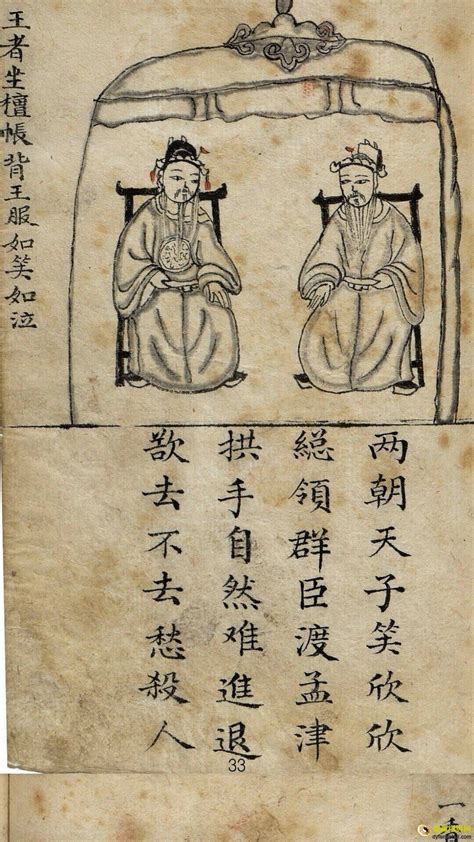 王者坐檀帳背王服如笑如泣
两朝天子笑欣欣
緫領群臣渡孟津
拱手自然难進退
欲去不去愁殺人
33